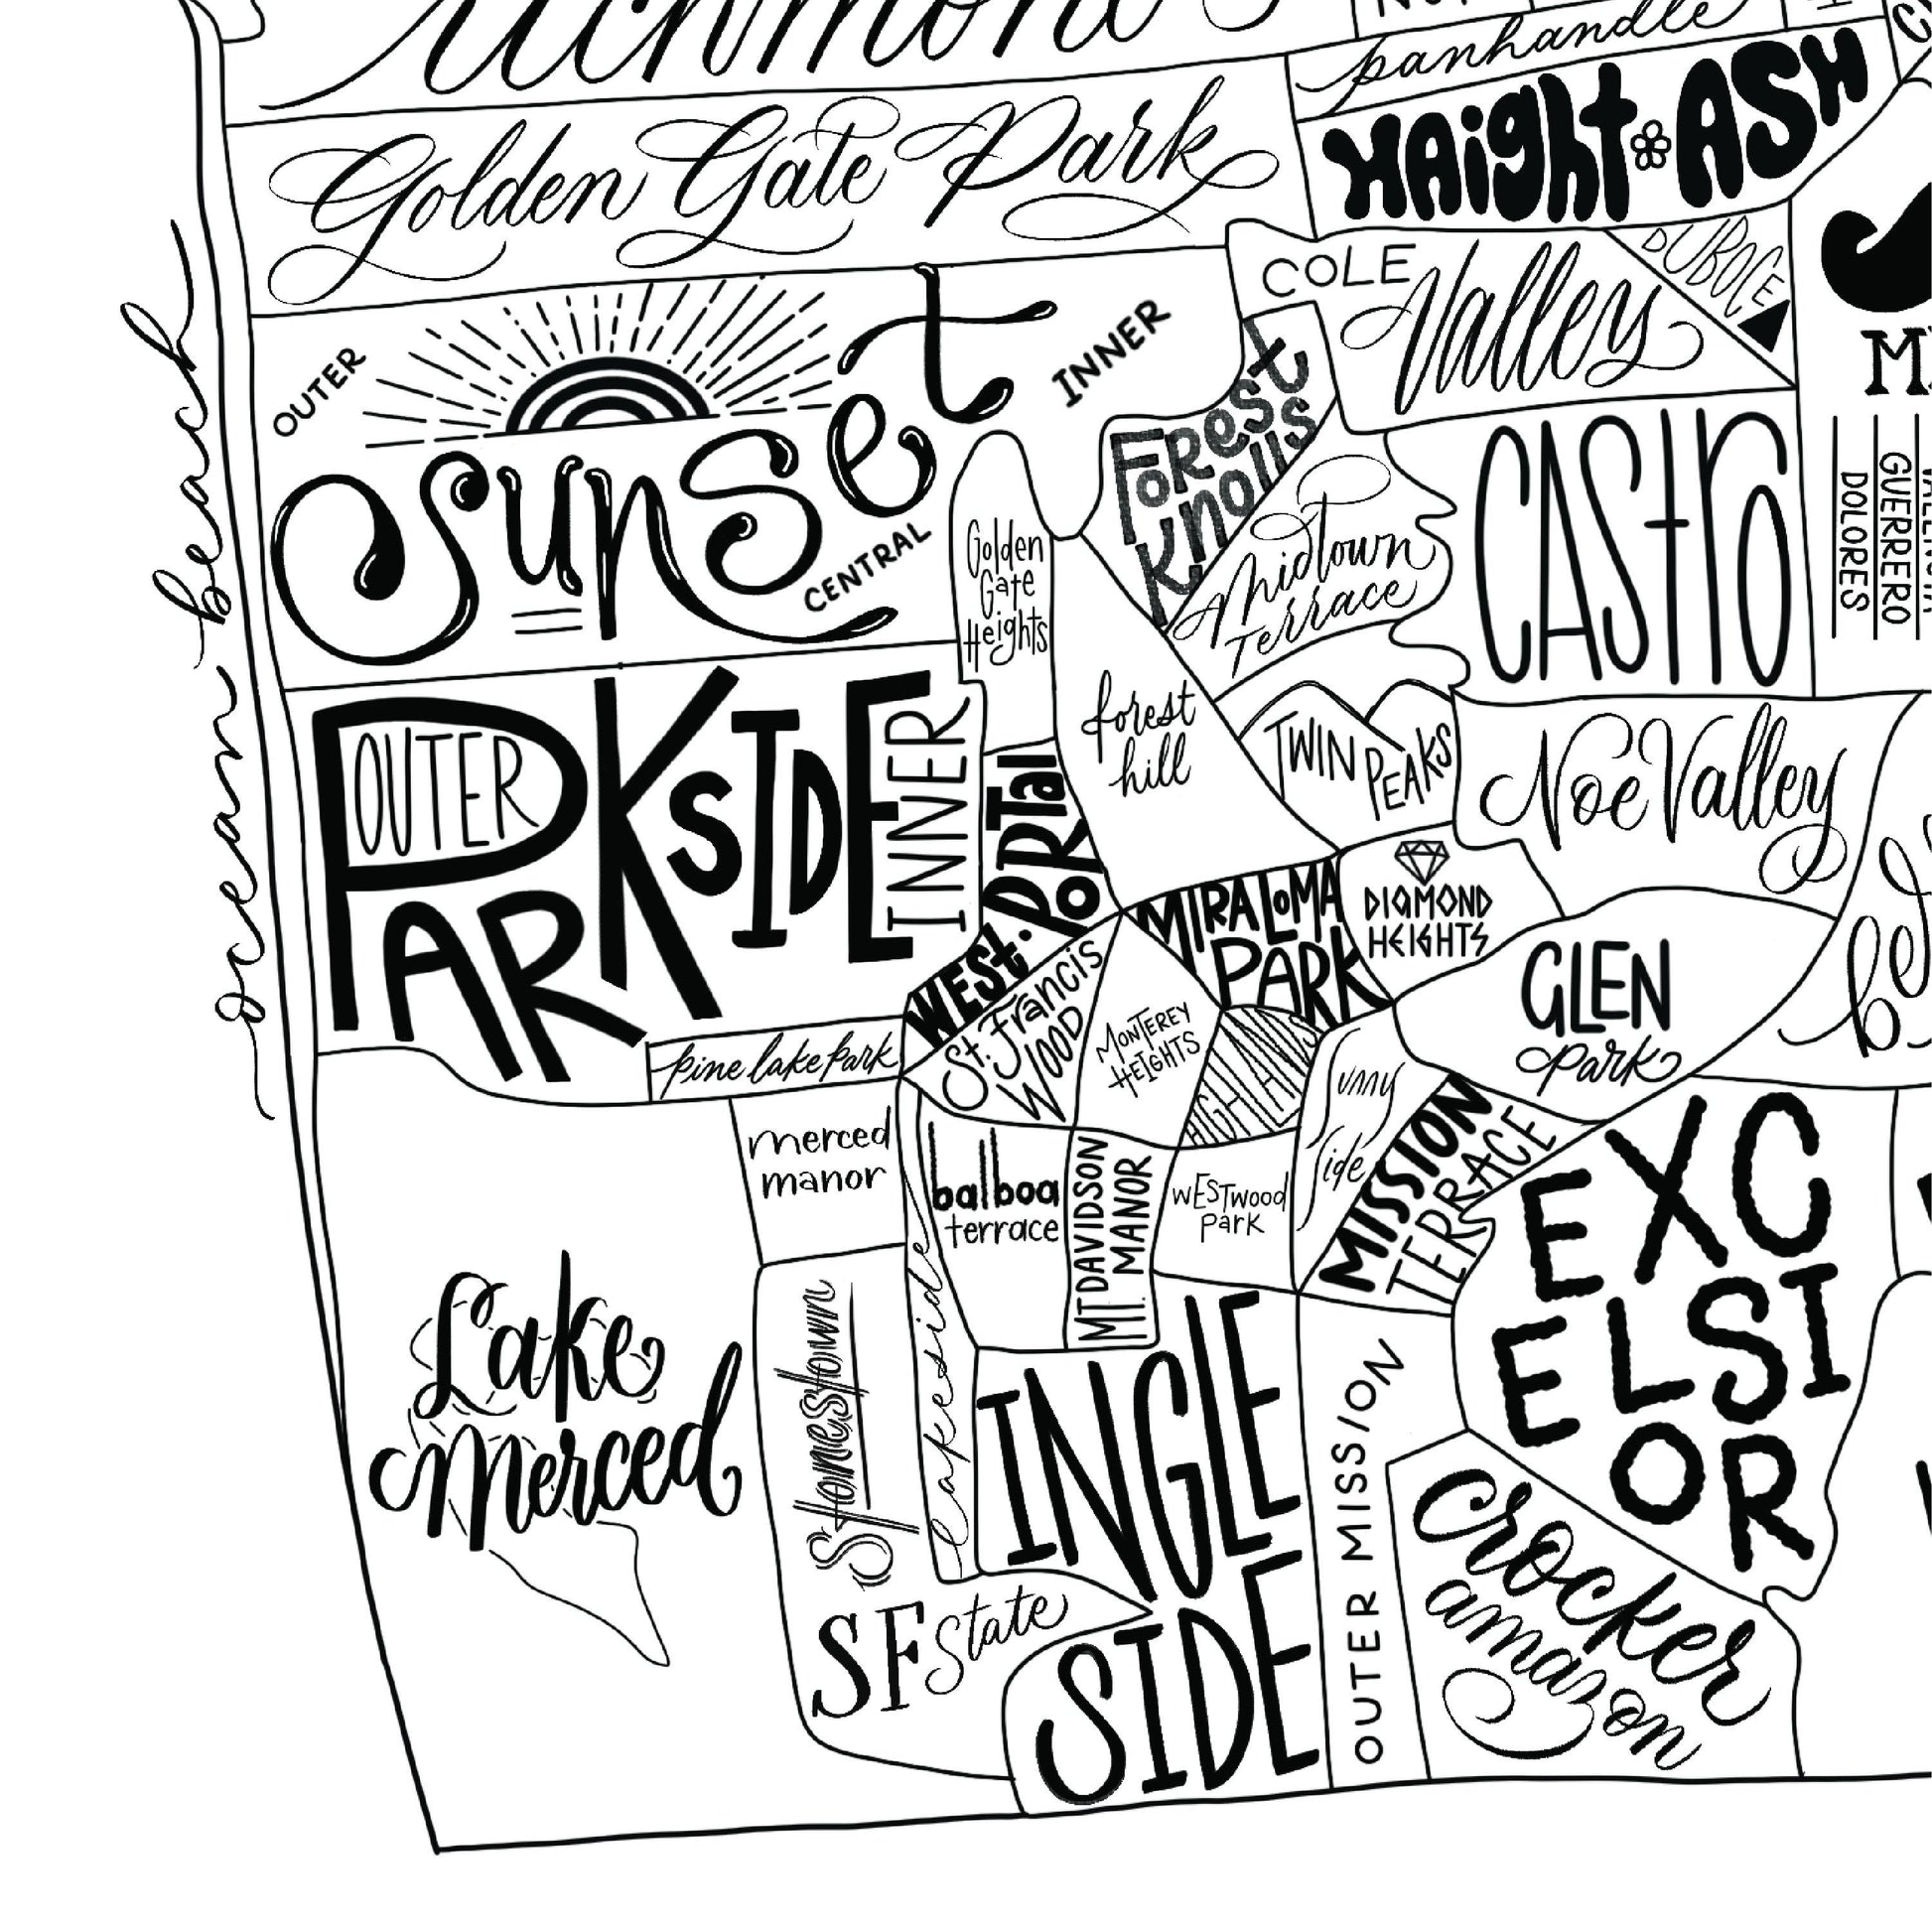 Richmond
panhandle
HAight ASH
Golden Gate Park
COLE
Valley
DUBOCE
OUTER
Sunset
INNER
CENTRAL
Forest
Knolls
Midtown
Terrace
CAStro
M
GUERRERO
DOLORES
Golden
Gate
Heights
forest
hill
TWIN PEAKS
Noe Valley
ocean beach
OUTER
PARKSIDE
INNER
WEST. PORTal
MIRALOMA
PARK
DIAMOND
HEIGHTS
GLEN
park
pine lake park
St. Francis
WOOD
MONTEREY
HEIGHTS
unny
side
MISSION
TERRACE
EXC
ELSI
OR
merced
manor
balboa
terrace
MT DAVIDSON
MT. MANOR
WESTwood
Park
Lake
Merced
Stonestown
lakeside
INGLE
SIDE
SF State
OUTER MISSION
Crocker
amazon